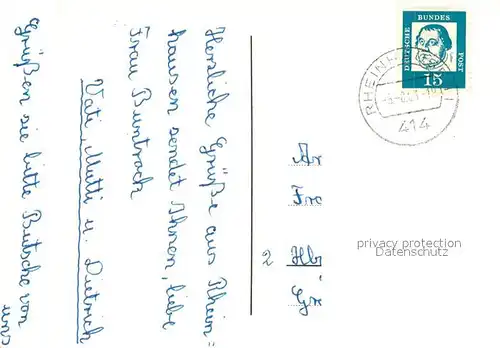 Herzliche Grüße aus Rhein=
hausen sendet Ihnen, liebe
Frau Buntrock
Vati, Mutti u. Dietrich
Grüßen sie bitte Butsche von
uns
DEUTSCHE
BUNDES
POST
15
RHEINH
414
Ar
Frc
2 Hb
Gr
privacy protection
Datenschutz